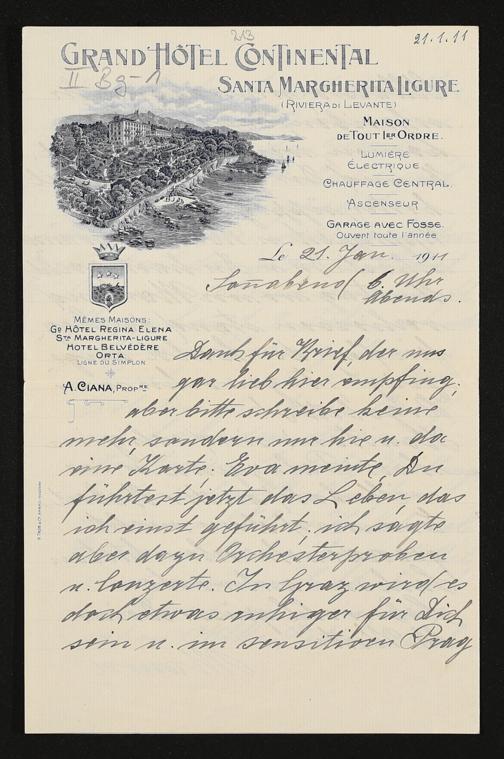 213
21.1.11
GRAND HÔTEL CONTINENTAL
II Bg-1
SANTA MARGHERITA LIGURE
(RIVIERA DI LEVANTE)
MAISON
DE TOUT 1ER ORDRE.
LUMIÈRE
ÉLECTRIQUE
CHAUFFAGE CENTRAL.
ASCENSEUR
GARAGE AVEC FOSSE.
Ouvert toute l'année
Le 21. Jan. 1911
Sonnabend 6. Uhr
Abends.
MÊMES MAISONS:
GD HÔTEL REGINA ELENA
STA MARGHERITA-LIGURE
HOTEL BELVÉDÈRE
ORTA
LIGNE DU SIMPLON
A. CIANA, PROPRE
Dank für Brief, der uns
gar lieb hier empfing;
aber bitte schreibe keine
mehr, sondern nur hie u. da
eine Karte. Eva meinte, Du
führtest jetzt das Leben, das
ich einst geführt; ich sagte
aber dazu Orchesterproben
u. Conzerte. In Graz wird es
doch etwas ruhiger für Dich
sein u. im sensitiven Prag